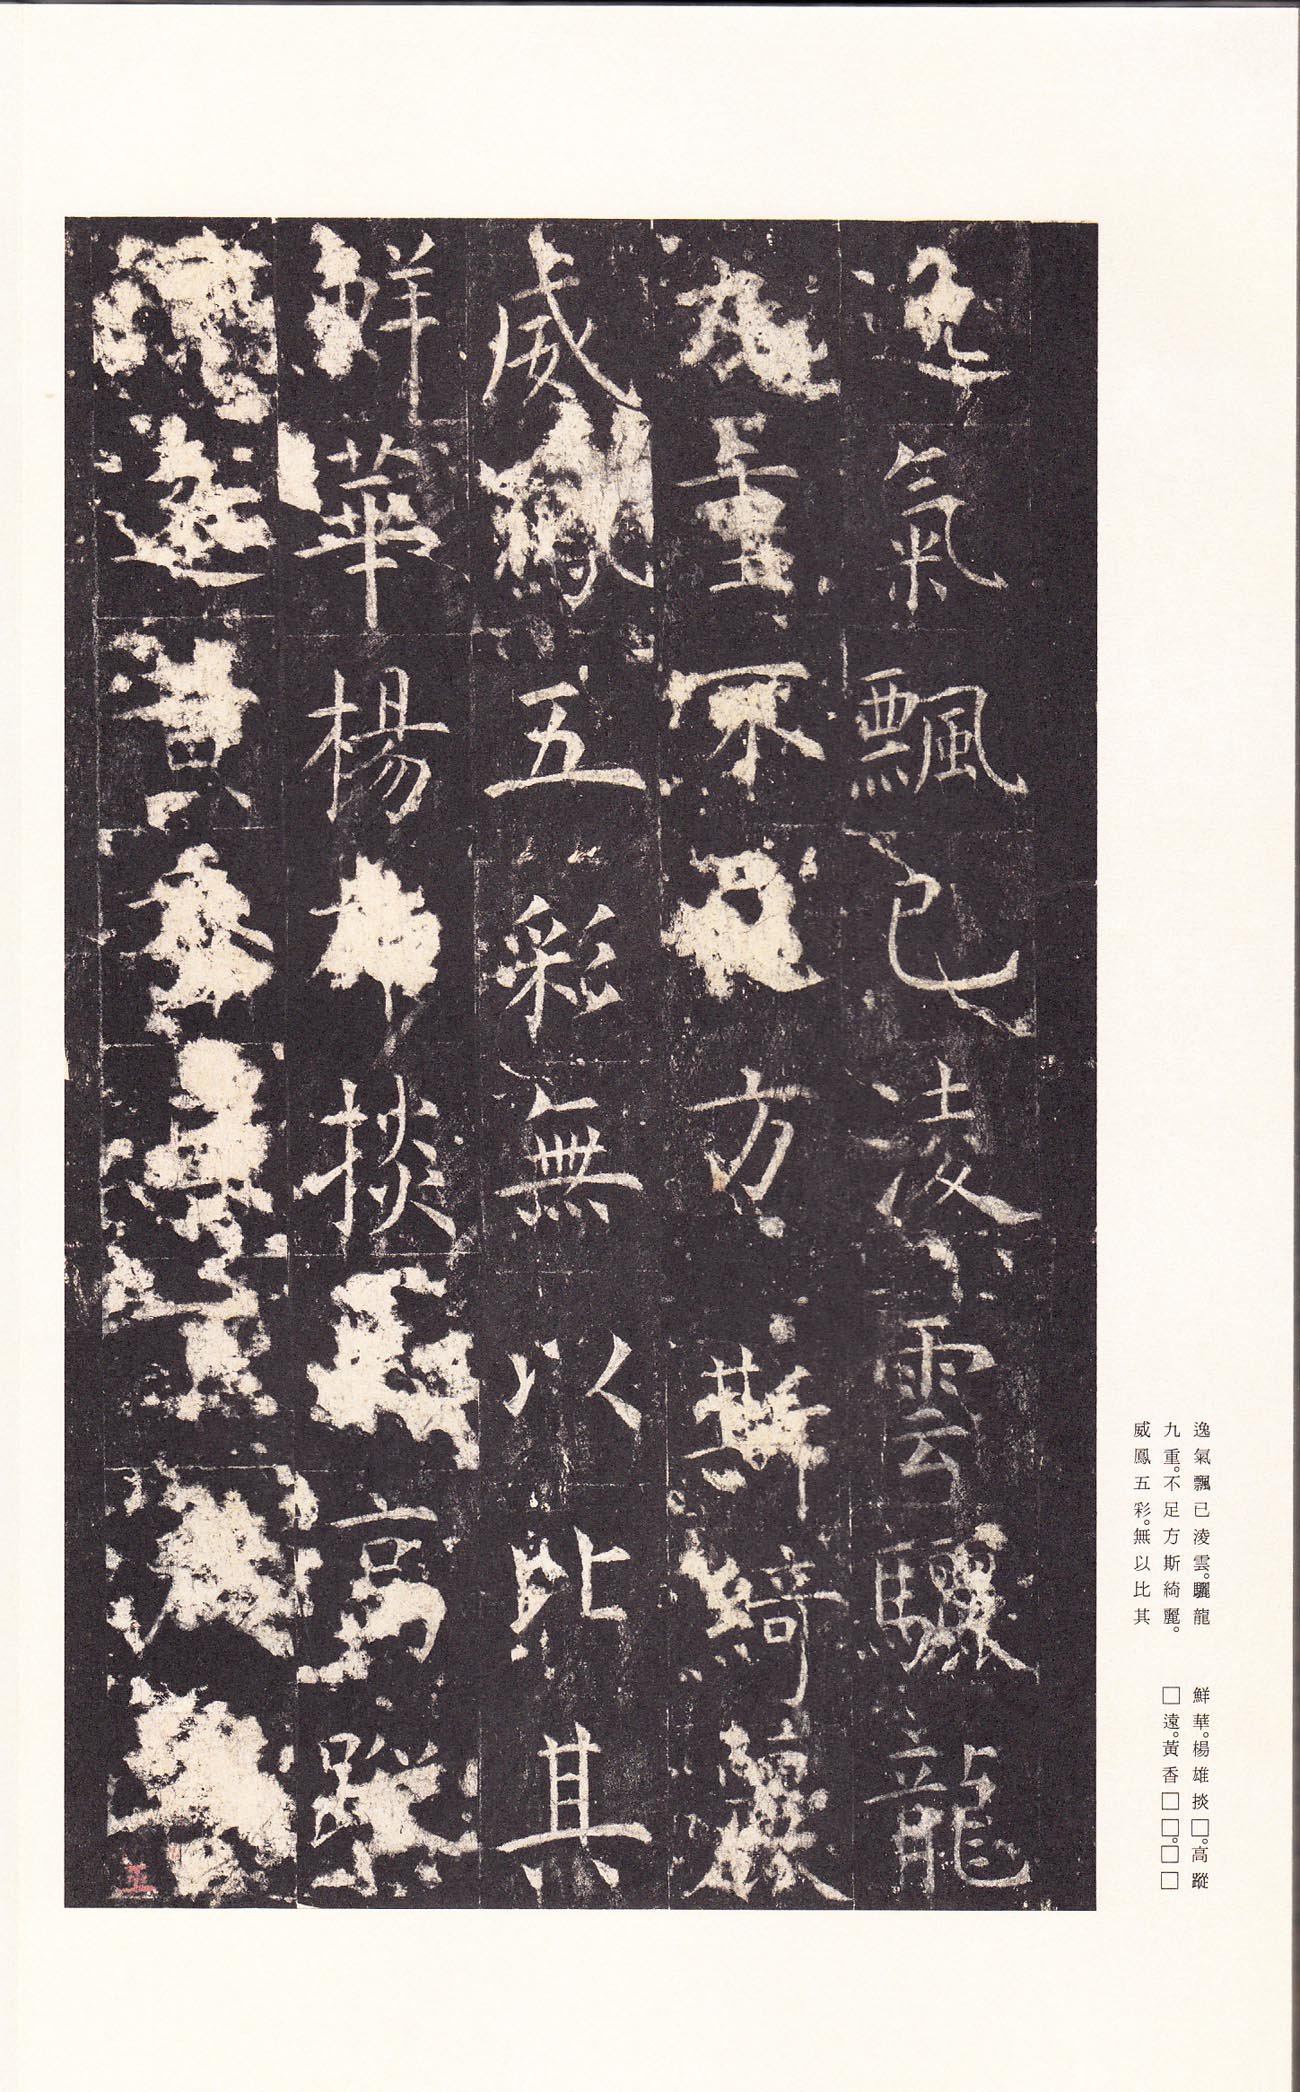 逸氣飄已淩雲驪龍
九重不足方斯綺麗
威鳳五彩無以比其
鮮華楊雄掞 高蹤
遠黃香
逸氣飄已淩雲。驪龍
九重。不足方斯綺麗。
威鳳五彩。無以比其
鮮華。楊雄掞□。高蹤
□遠。黃香□□。□□